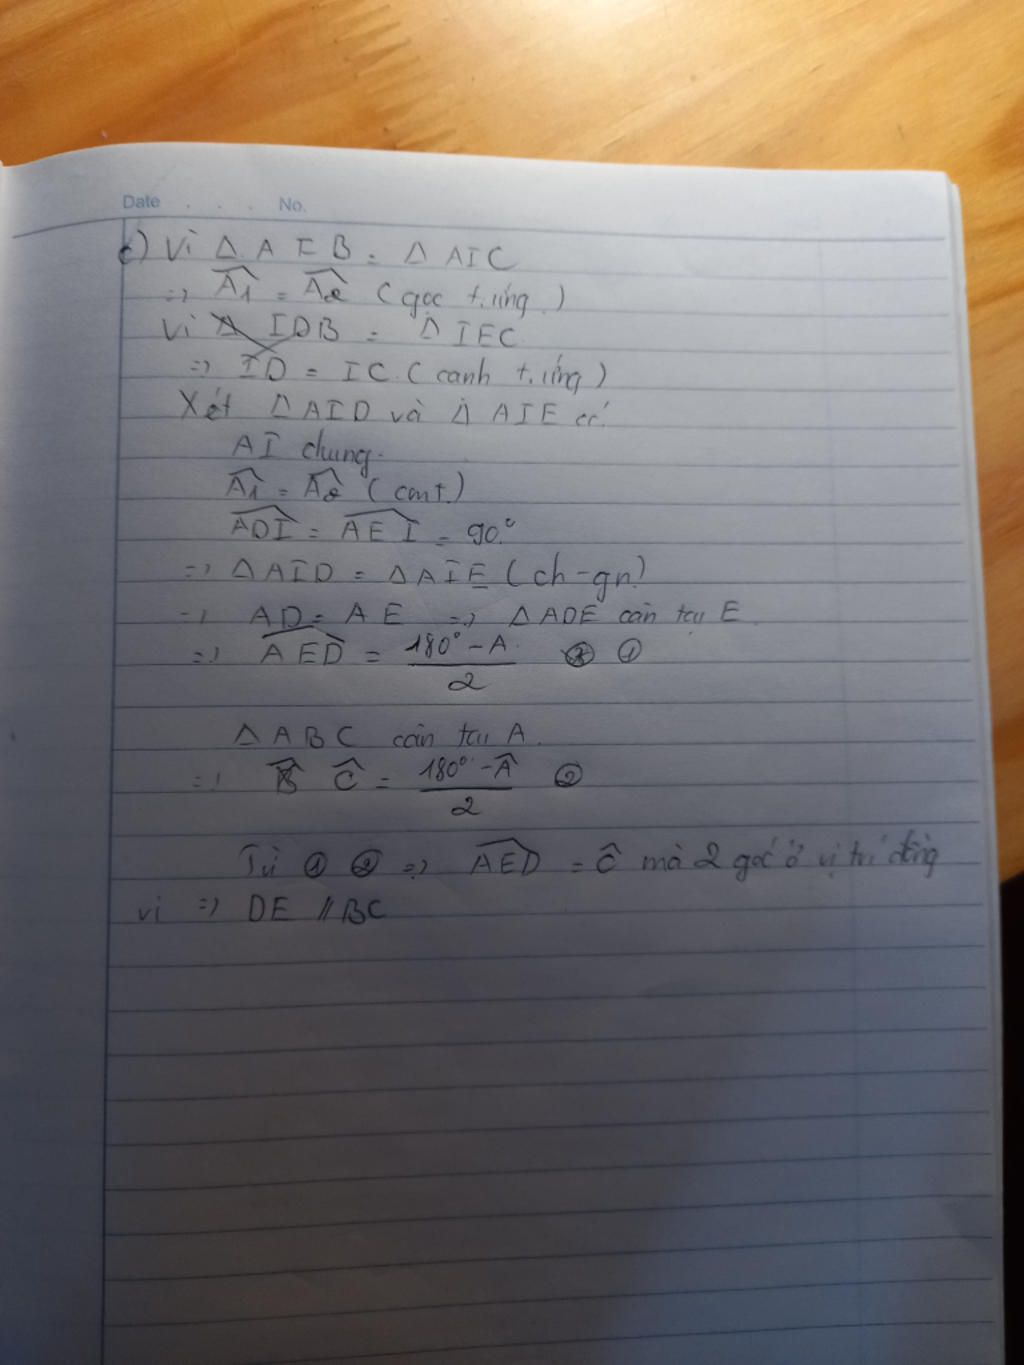 Date . . . No.
c) Vì Δ AIB = Δ AIC
=> Â1 = Â2 (góc t.ứng)
Vì Δ IDB = Δ IEC
=> ID = IC (cạnh t.ứng)
Xét Δ AID và Δ AIE có
AI chung
Â1 = Â2 (cmt)
ADI = AEI = 90°
=> Δ AID = Δ AIE (ch-gn)
=> AD = AE => Δ ADE cân tại E
=> AED = (180° - A)/2 ①
Δ ABC cân tại A.
=> Ĉ = (180° - Â)/2 ②
Từ ① ② => AED = Ĉ mà 2 góc ở vị trí đồng
vị => DE // BC